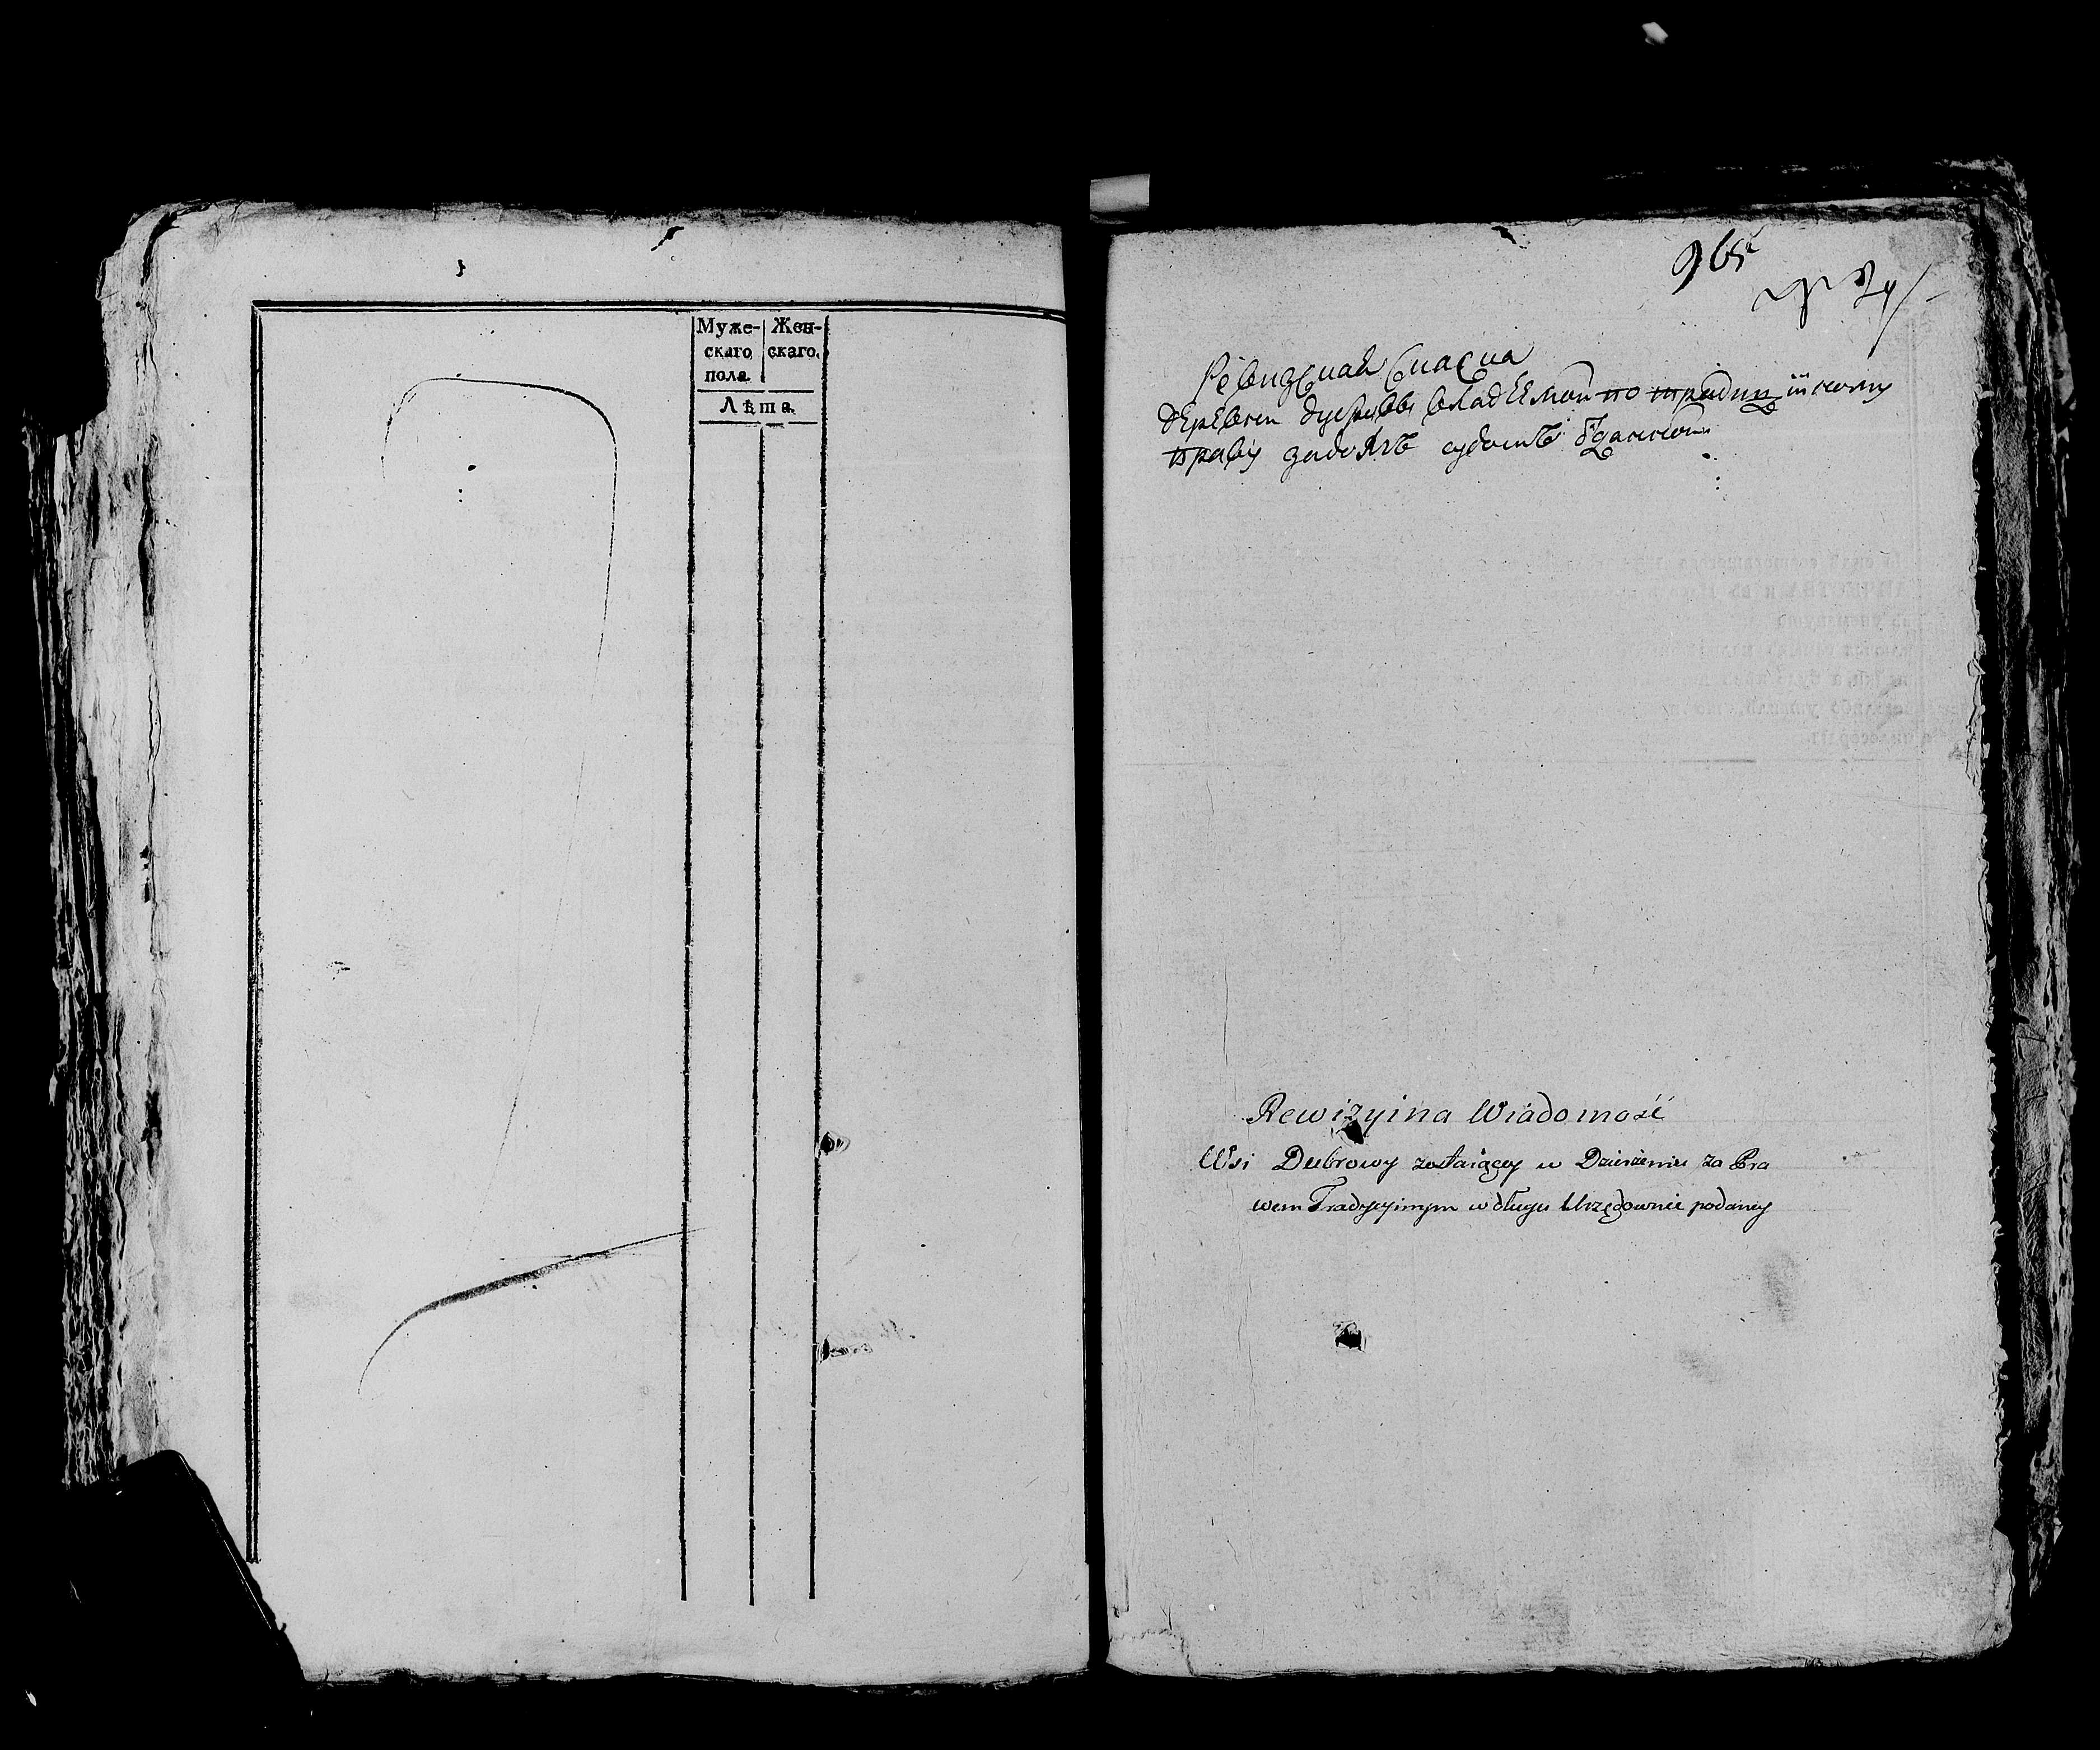 Муже- Жен-
скаго скаго.
пола.
Лѣта.
965
Ревизская Сказка
деревни Дубровы владѣемой по традиціиному
праву задолгъ судомъ
Rewizyina Wiadomość
Wsi Dubrowy zostaiącey w Dzierżeniu za Pra
wem Tradycyinym w długu Urzędownie podaney